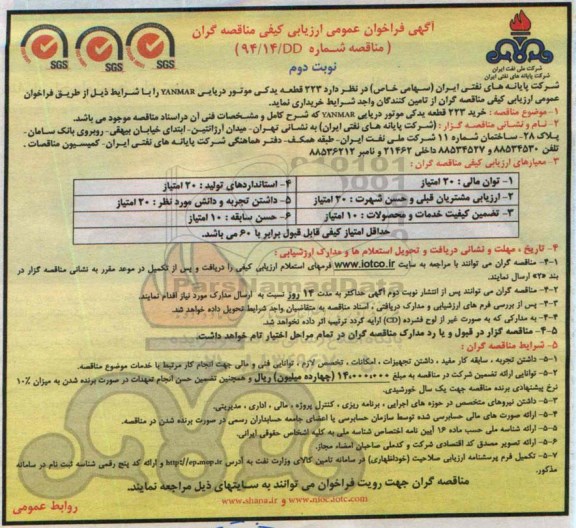 آگهی فراخوان عمومی ارزیابی کیفی مناقصه گران
( مناقصه شماره ۹۴/۱۴/DD )
نوبت دوم
شرکت ملی نفت ایران
شرکت پایانه های نفتی ایران
SGS SGS SGS
شرکت پایانه های نفتی ایران (سهامی خاص) در نظر دارد ۲۲۳ قطعه یدکی موتور دریایی YANMAR را با شرایط ذیل از طریق فراخوان
عمومی ارزیابی کیفی مناقصه گران از تامین کنندگان واجد شرایط خریداری نماید.
۱- موضوع مناقصه : خرید ۲۲۳ قطعه یدکی موتور دریایی YANMAR که شرح کامل و مشخصات فنی آن در اسناد مناقصه موجود می باشد.
۲- نام و نشانی مناقصه گزار : (شرکت پایانه های نفتی ایران) به نشانی تهران- میدان آرژانتین- ابتدای خیابان بیهقی- روبروی بانک سامان-
پلاک ۲۸- ساختمان شماره ۱۱ شرکت ملی نفت ایران- طبقه همکف- دفتر هماهنگی شرکت پایانه های نفتی ایران- کمیسیون مناقصات .
تلفن ۸۸۵۳۴۵۳۰ و ۸۸۵۳۴۵۲۷ داخلی ۲۱۴۶۲ و نامبر ۸۸۵۳۶۲۱۲
۳- معیارهای ارزیابی کیفی مناقصه گران :
۱- توان مالی : ۲۰ امتیاز ۴- استانداردهای تولید : ۲۰ امتیاز
۲- ارزیابی مشتریان قبلی و حسن شهرت : ۲۰ امتیاز ۵- داشتن تجربه و دانش مورد نظر : ۲۰ امتیاز
۳- تضمین کیفیت خدمات و محصولات : ۱۰ امتیاز ۶- حسن سابقه : ۱۰ امتیاز
حداقل امتیاز کیفی قابل قبول برابر با ۶۰ می باشد.
۴- تاریخ ، مهلت و نشانی دریافت و تحویل استعلام ها و مدارک ارزشیابی :
۴-۱- مناقصه گران می توانند با مراجعه به سایت www.iotco.ir فرمهای استعلام ارزیابی کیفی را دریافت و پس از تکمیل در موعد مقرر به نشانی مناقصه گزار در
بند «۲» ارسال نمایند.
۴-۲- مناقصه گران می توانند پس از انتشار نوبت دوم آگهی حداکثر به مدت ۱۴ روز نسبت به ارسال مدارک مورد نیاز اقدام نمایند.
۴-۳- پس از بررسی فرم های ارزشیابی و مدارک دریافتی ، اسناد مناقصه به متقاضیان واجد شرایط تحویل داده خواهد شد.
۴-۴- به مدارکی که به صورت غیر از لوح فشرده (CD) ارایه گردد ترتیب اثر داده نخواهد شد.
۴-۵- مناقصه گزار در قبول و یا رد مدارک مناقصه گران در تمام مراحل اختیار تام خواهد داشت.
۵- شرایط مناقصه گران :
۵-۱- داشتن تجربه ، سابقه کار مفید ، داشتن تجهیزات ، امکانات ، تخصص لازم ، توانایی فنی و مالی جهت انجام کار مرتبط با خدمات موضوع مناقصه.
۵-۲- توانایی ارائه تضمین شرکت در مناقصه به مبلغ ۱۴،۰۰۰،۰۰۰ (چهارده میلیون) ریال و همچنین تضمین حسن انجام تعهدات در صورت برنده شدن به میزان ۱۰٪
نرخ پیشنهادی برنده مناقصه جهت یک سال خورشیدی.
۵-۳- داشتن نیروهای متخصص در حوزه های اجرایی ، برنامه ریزی ، کنترل پروژه ، مالی ، اداری ، مدیریتی.
۵-۴- ارائه صورت های مالی حسابرسی شده توسط سازمان حسابرسی یا اعضای جامعه حسابداران رسمی در صورت برنده شدن در مناقصه.
۵-۵- ارائه شناسه ملی حسب ماده ۱۶ آیین نامه اختصاص شناسه ملی به کلیه اشخاص حقوقی ایرانی.
۵-۶- ارائه تصویر مصدق کد اقتصادی شرکت و کدملی صاحبان امضاء مجاز.
۵-۷- تکمیل فرم پرسشنامه ارزیابی صلاحیت (خوداظهاری) در سامانه تامین کالای وزارت نفت به آدرس http://ep.mop.ir و ارائه کد پنج رقمی شناسه ثبت نام در سامانه
مذکور.
مناقصه گران جهت رویت فراخوان می توانند به سایتهای ذیل مراجعه نمایند.
www.shana.ir و www.nioc.iotc.com
روابط عمومی
ParsNamadData